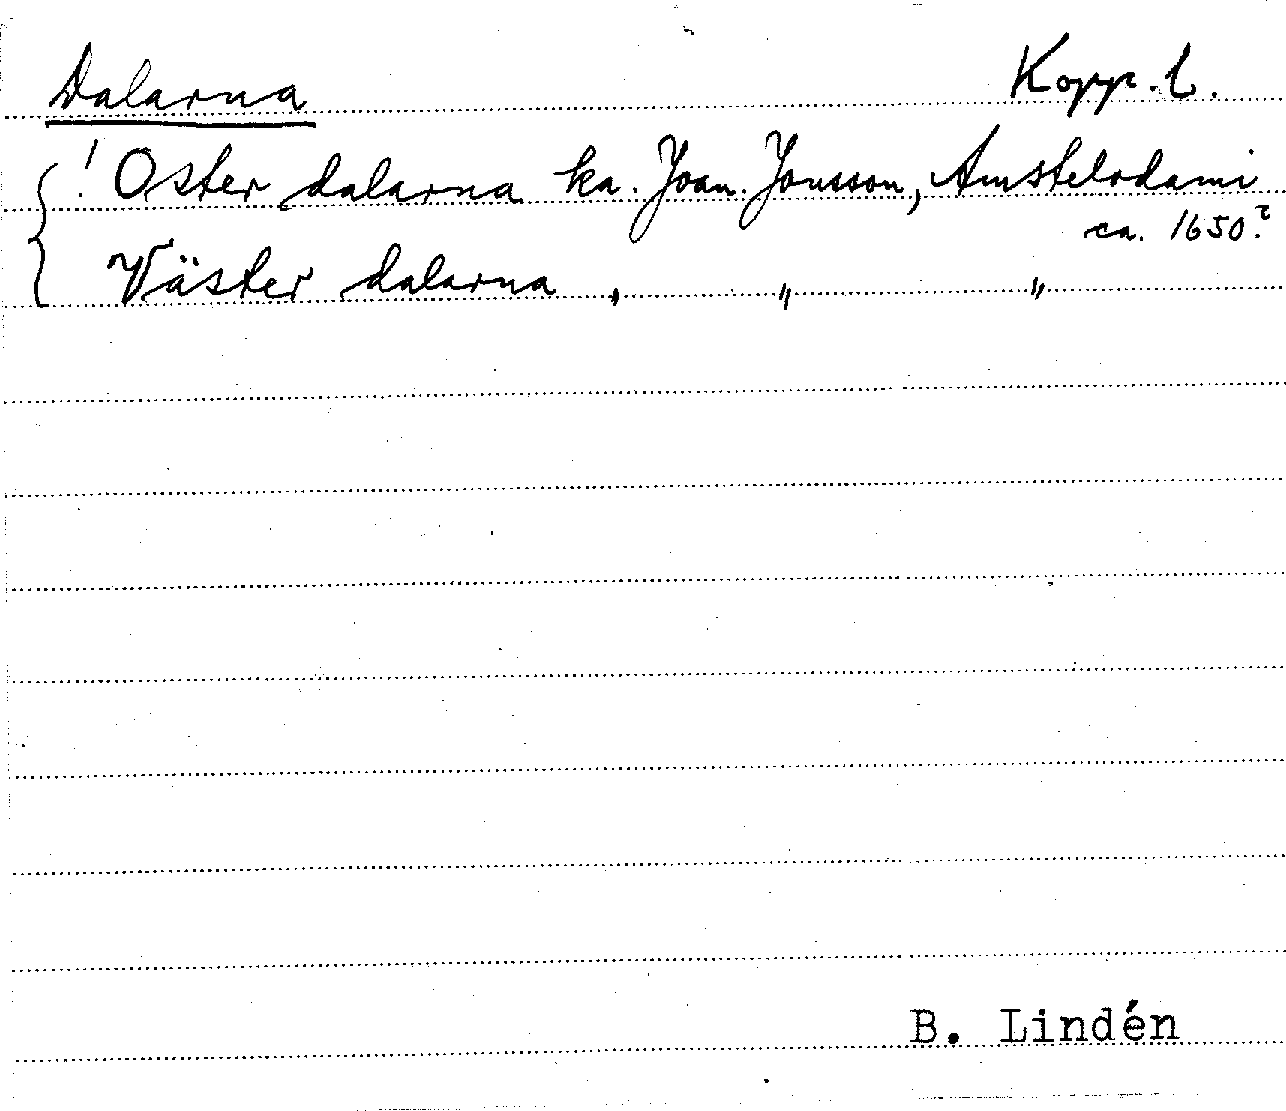 Dalarna Kopp. l.
! Oster dalarna ka. Joan. Jonsson, Amstelodami
ca. 1650?
Väster dalarna , " "
B. Lindén